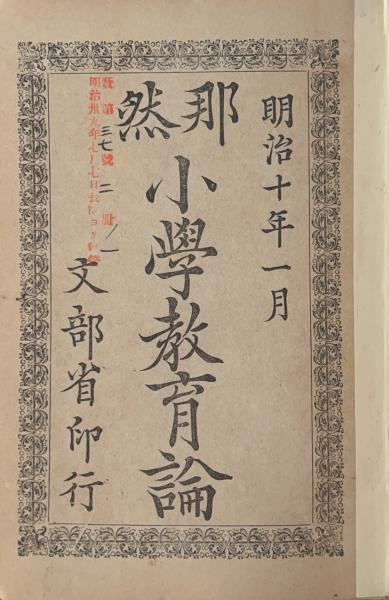 明治十年一月
那然
小學教育論
文部省印行
教第三七號二冊ノ一
明治卅九年七月七日